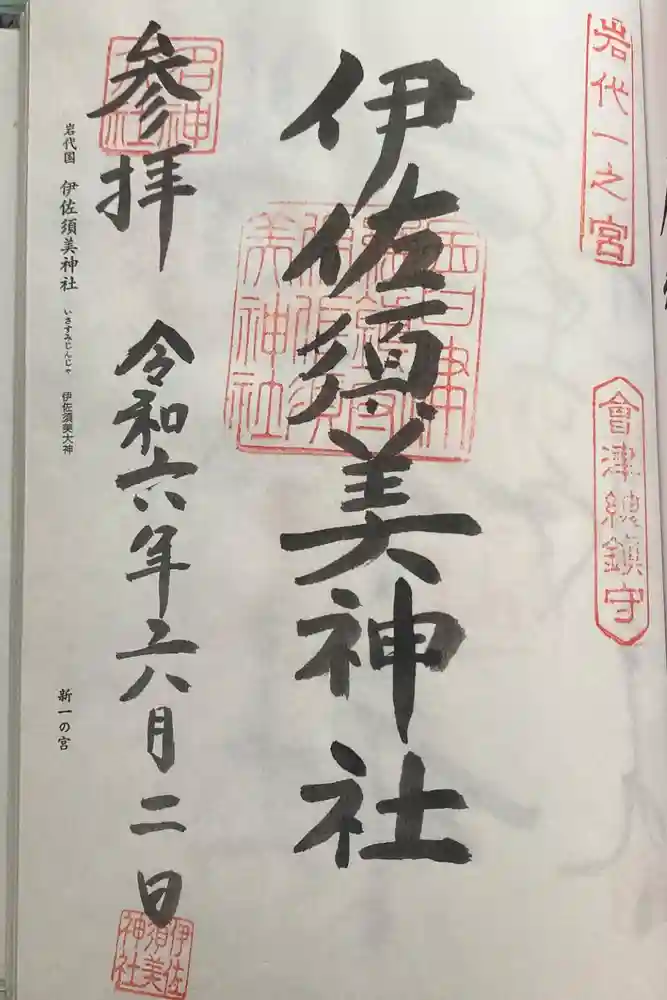 岩代一之宮
會津總鎮守
伊佐須美神社
會津
總鎮守
伊佐須
美神社
参拝
名神
大社
令和六年六月二日
伊佐
須美
神社
岩代国 伊佐須美神社 いさすみじんじゃ 伊佐須美大神
新一の宮